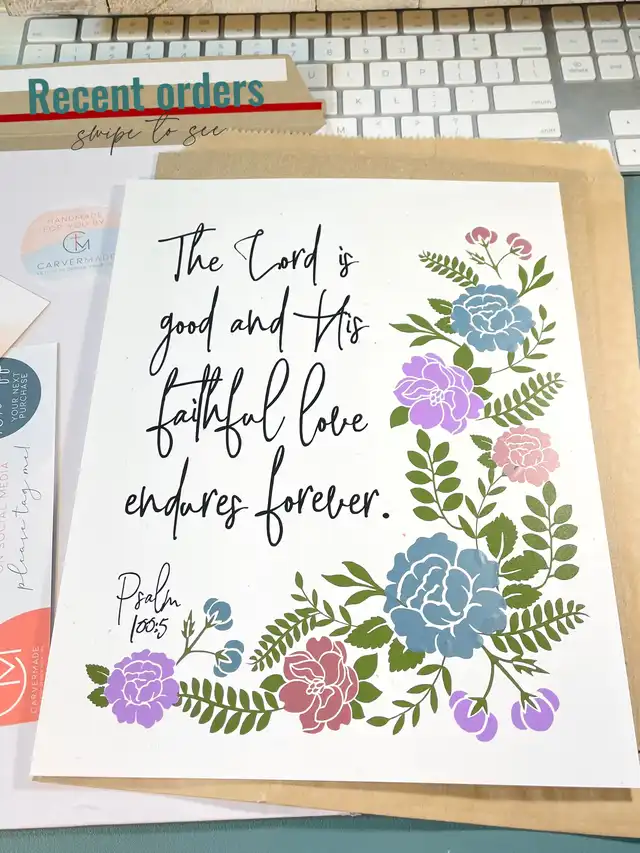 Recent orders
swipe to see
HANDMADE
FOR YOU BY
CM
CARVERMADE
The Lord is
good and His
faithful love
endures forever.
Psalm
100:5
YOUR NEXT
PURCHASE
ON SOCIAL MEDIA
please tag me!
CARVERMADE